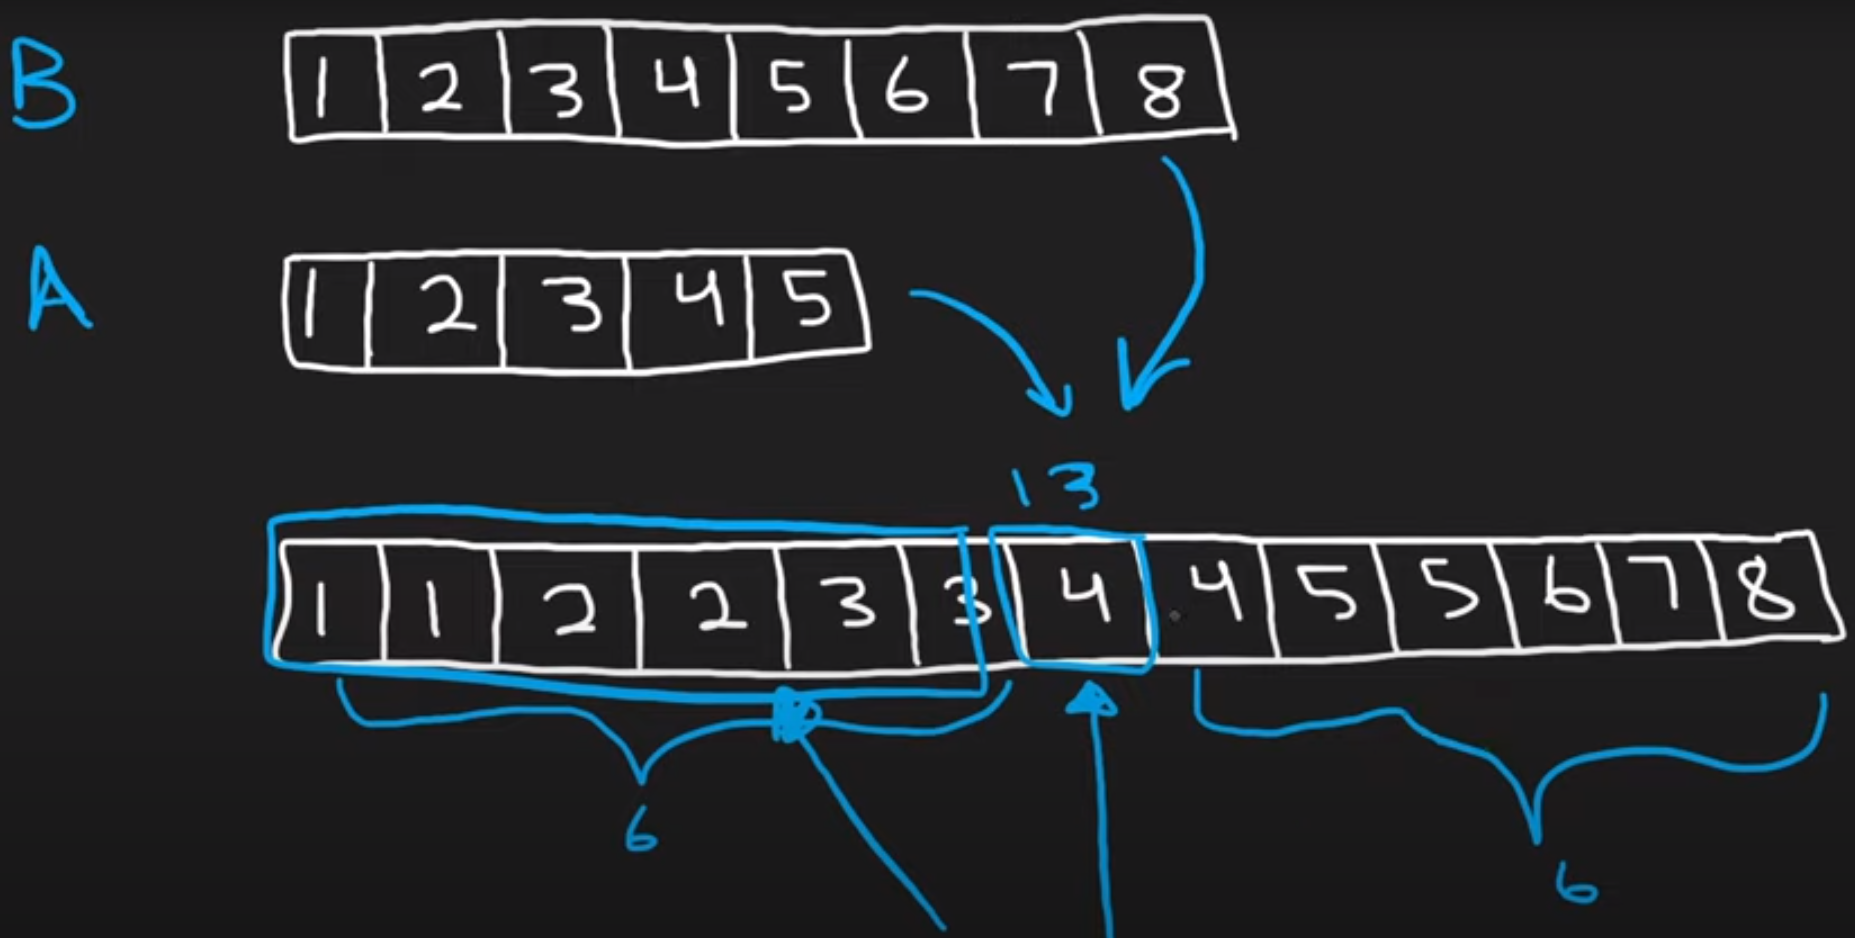 B 1 2 3 4 5 6 7 8
A 1 2 3 4 5
13
1 1 2 2 3 3 4 4 5 5 6 7 8
6
6